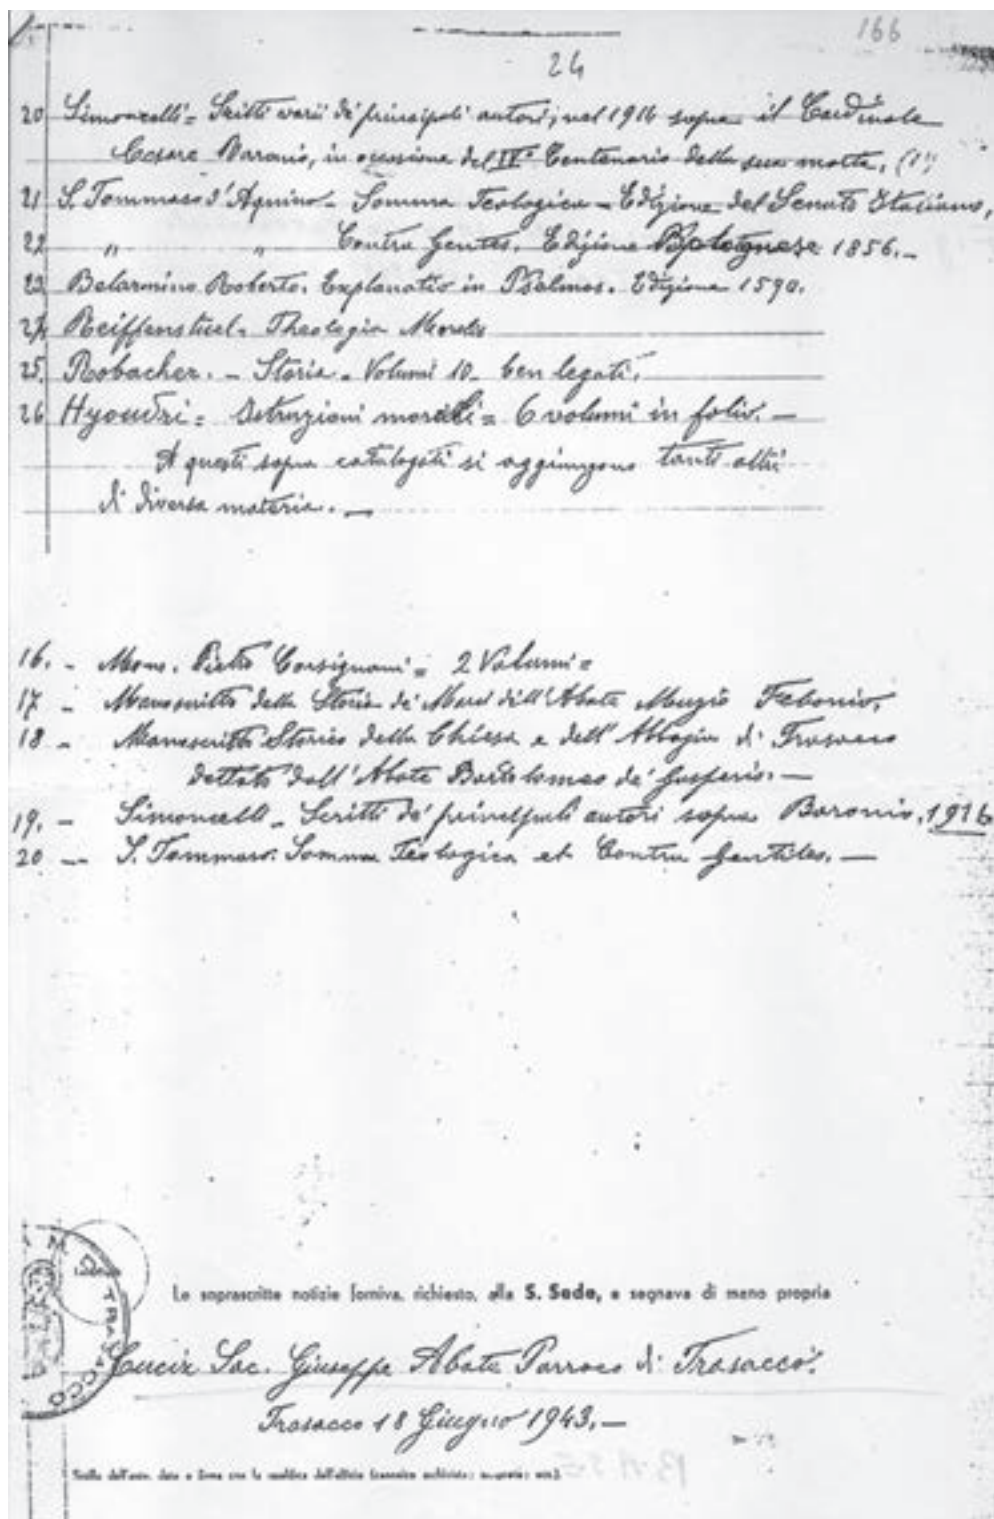 166
24
20 Simoncelli = Scritti varii de' principali autori, nel 1916 sopra il Cardinale
Cesare Baronio, in occasione del IV° Centenario della sua morte. (1°)
21 S. Tommaso d'Aquino - Somma Teologica - Edizione del Senato Italiano,
22 " " Contra Gentes. Edizione Bolognese 1856.-
23 Belarmino Roberto. Explanatio in Psalmos. Edizione 1590.
24 Reiffenstuel - Theologia Moralis
25. Robacher. - Storia - Volumi 10 - ben legati.
26 = Istruzioni morali = 6 volumi in folio. -
A questi sopra catalogati si aggiungono tanti altri
di diversa materia. -
16. - Mons. Pietro Corsignani = 2 Volumi =
17 - Manoscritto della Storia de' Marsi dell'Abate Muzio Febonio,
18 - Manoscritto Storico della Chiesa e dell'Abbazia di Trasacco
dettato dall'Abate Bartolomeo de' Gasperis. -
19. - Simoncelli - Scritti de' principali autori sopra Baronio, 1916
20 - S. Tommaso: Somma Teologica et Contra Gentiles. -
Le soprascritte notizie forniva, richiesto, alla S. Sede, e segnava di mano propria
Sac. Giuseppe Abate Parroco di Trasacco.
Trasacco 18 Giugno 1943. -
TRASACCO